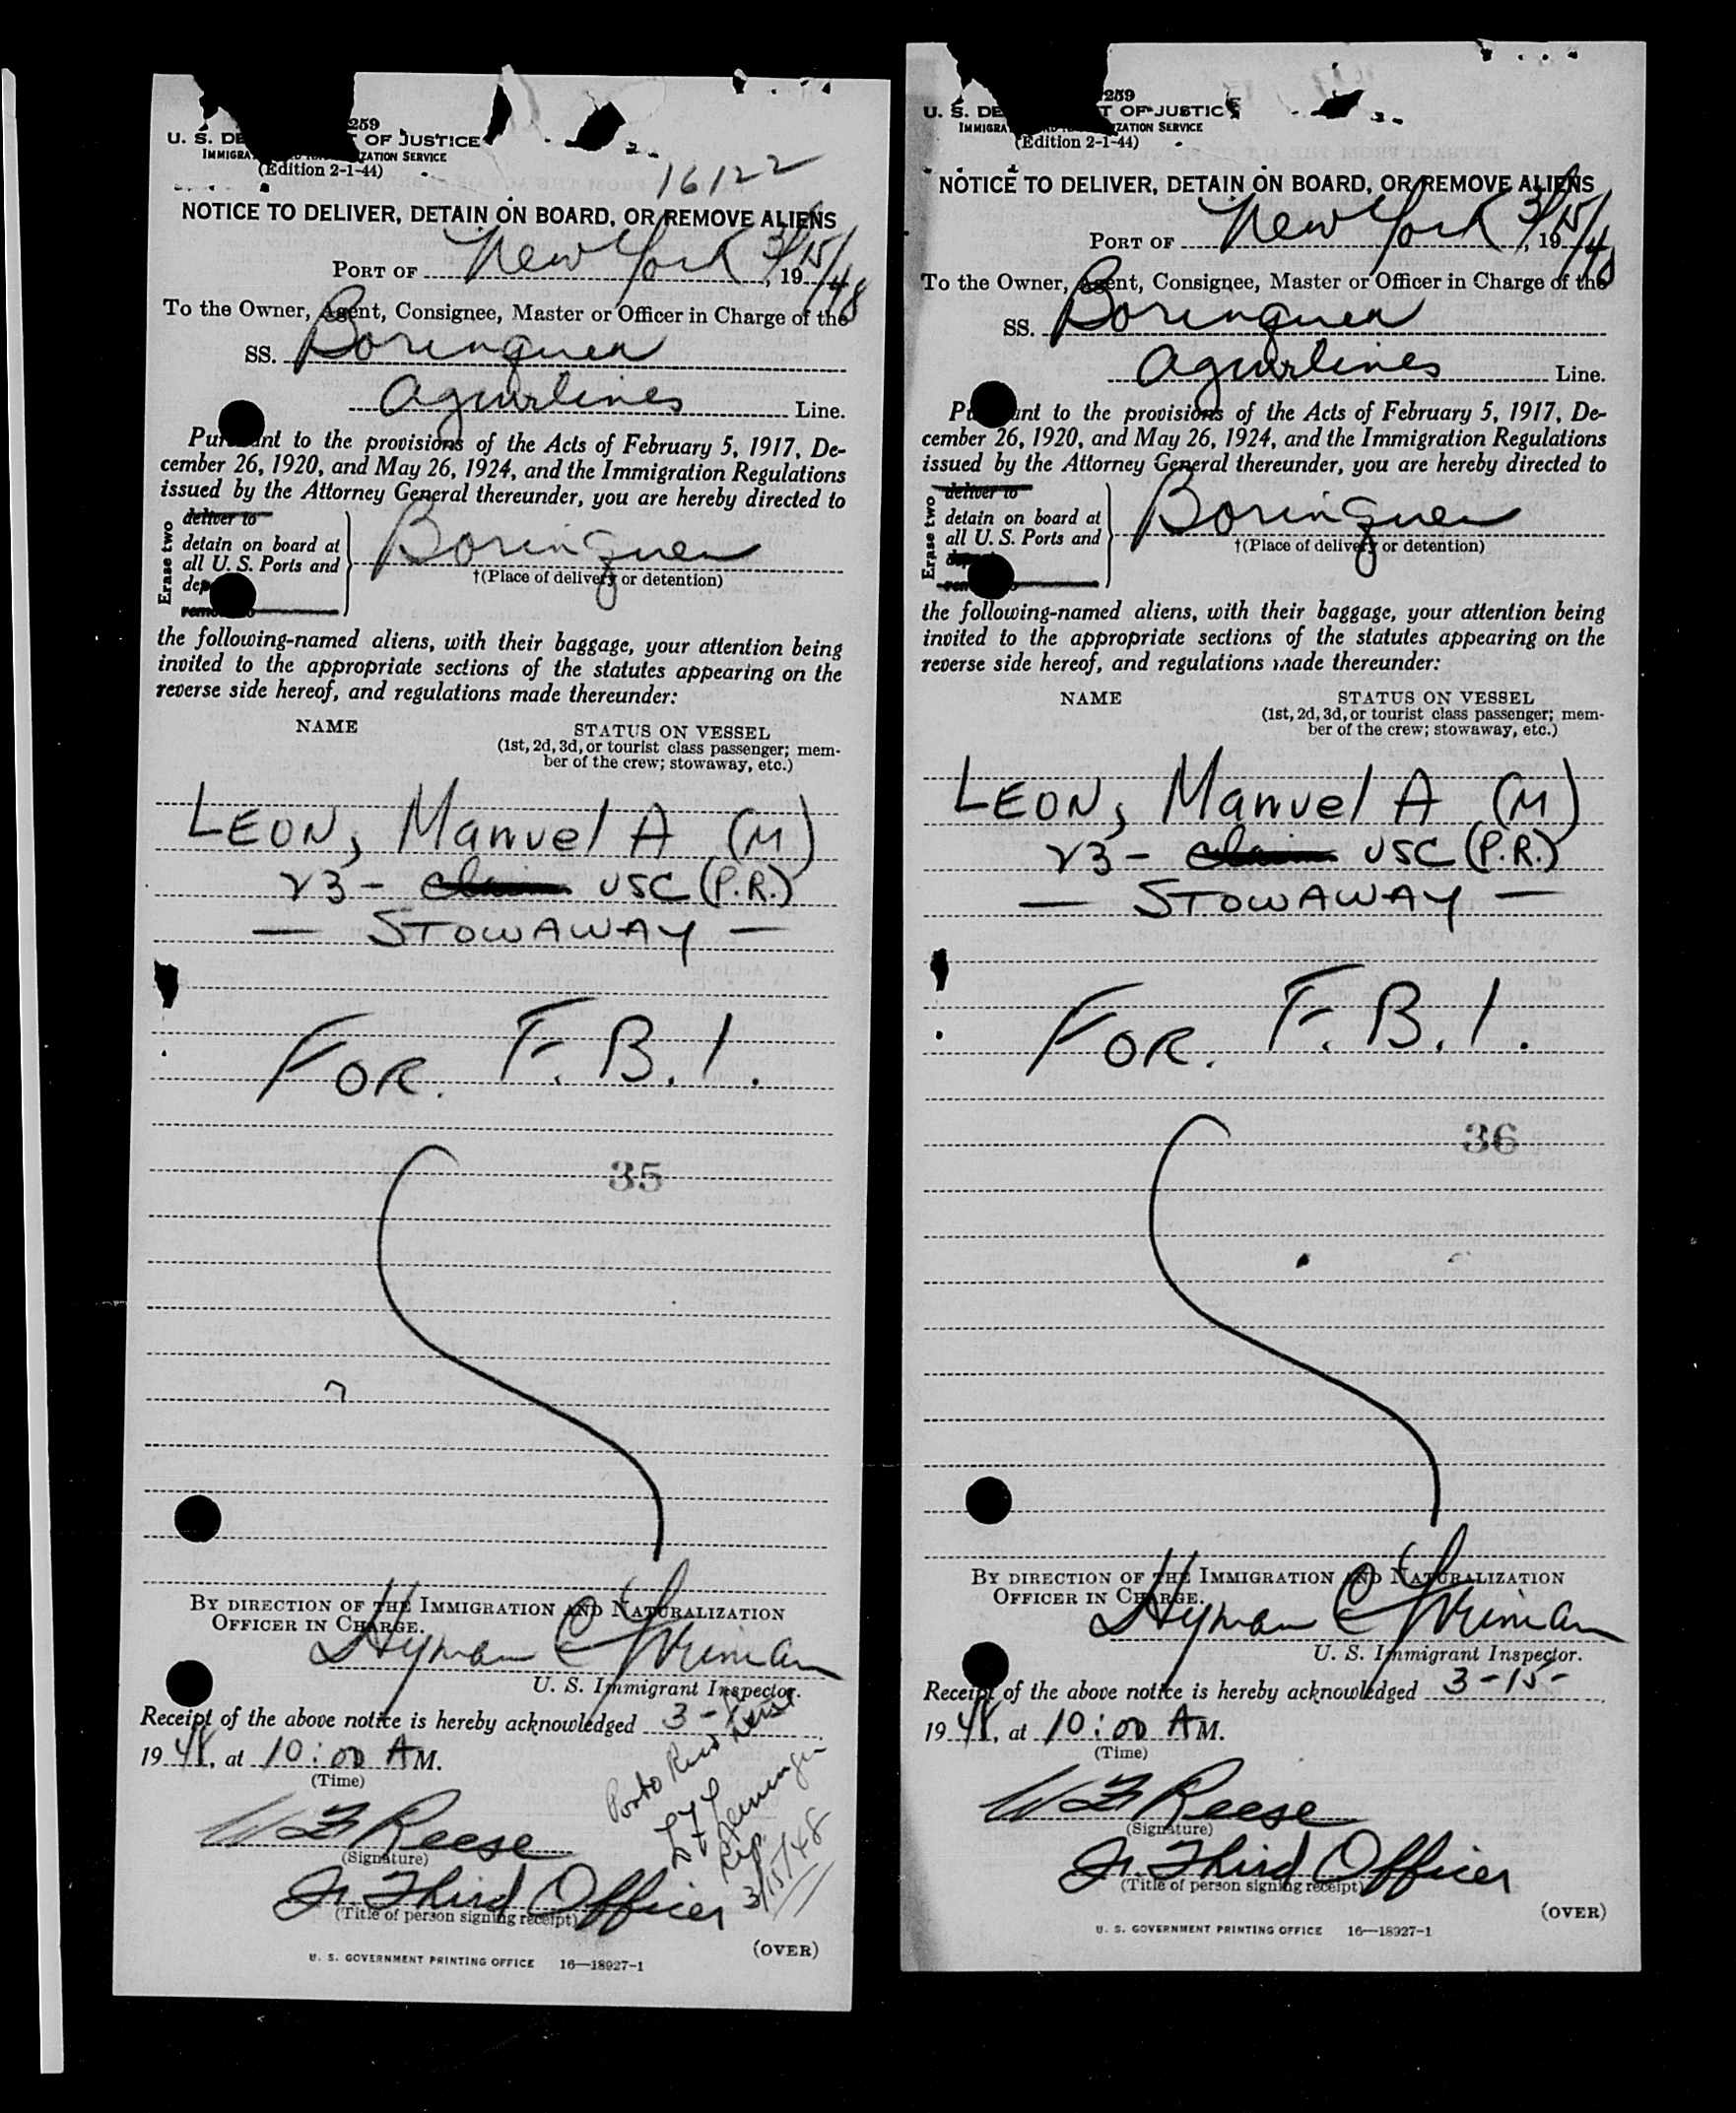 259
U. S. DE T OF JUSTICE
IMMIGRA ZATION SERVICE
(Edition 2-1-44)
16122
NOTICE TO DELIVER, DETAIN ON BOARD, OR REMOVE ALIENS
PORT OF New York 3/15/, 19 /48
To the Owner, Agent, Consignee, Master or Officer in Charge of the
SS. Borinquen
Agwilines Line.
Pur nt to the provisions of the Acts of February 5, 1917, De-
cember 26, 1920, and May 26, 1924, and the Immigration Regulations
issued by the Attorney General thereunder, you are hereby directed to
Erase two
deliver to
detain on board at
all U. S. Ports and
dep
remo
Borinquen
†(Place of delivery or detention)
the following-named aliens, with their baggage, your attention being
invited to the appropriate sections of the statutes appearing on the
reverse side hereof, and regulations made thereunder:
NAME STATUS ON VESSEL
(1st, 2d, 3d, or tourist class passenger; mem-
ber of the crew; stowaway, etc.)
LEON, Manuel A (M)
23 - claim USC (P.R.)
— STOWAWAY —
FOR. F.B.I.
35
BY DIRECTION OF THE IMMIGRATION AND NATURALIZATION
OFFICER IN CHARGE.
Hyman C
U. S. Immigrant Inspector.
Receipt of the above notice is hereby acknowledged 3-
19 48, at 10:00 AM.
(Time)
W B Reese
(Signature)
Jr Third Officer
(Title of person signing receipt)
Porto
3/15/48
(OVER)
U. S. GOVERNMENT PRINTING OFFICE 16—18927-1
259
U. S. DE T OF JUSTICE
IMMIGRA ZATION SERVICE
(Edition 2-1-44)
NOTICE TO DELIVER, DETAIN ON BOARD, OR REMOVE ALIENS
PORT OF New York 3/15/, 19 /48
To the Owner, Agent, Consignee, Master or Officer in Charge of the
SS. Borinquen
Agwilines Line.
Pu ant to the provisions of the Acts of February 5, 1917, De-
cember 26, 1920, and May 26, 1924, and the Immigration Regulations
issued by the Attorney General thereunder, you are hereby directed to
Erase two
deliver to
detain on board at
all U. S. Ports and
dep
rem
Borinquen
†(Place of delivery or detention)
the following-named aliens, with their baggage, your attention being
invited to the appropriate sections of the statutes appearing on the
reverse side hereof, and regulations made thereunder:
NAME STATUS ON VESSEL
(1st, 2d, 3d, or tourist class passenger; mem-
ber of the crew; stowaway, etc.)
LEON, Manuel A (M)
23 - claim USC (P.R.)
— STOWAWAY —
FOR. F.B.I.
36
BY DIRECTION OF THE IMMIGRATION AND NATURALIZATION
OFFICER IN CHARGE.
Hyman C
U. S. Immigrant Inspector.
Receipt of the above notice is hereby acknowledged 3-15-
19 48, at 10:00 AM.
(Time)
W B Reese
(Signature)
Jr Third Officer
(Title of person signing receipt)
(OVER)
U. S. GOVERNMENT PRINTING OFFICE 16—18927-1